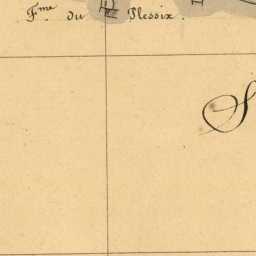 Fme du Plessix.
S